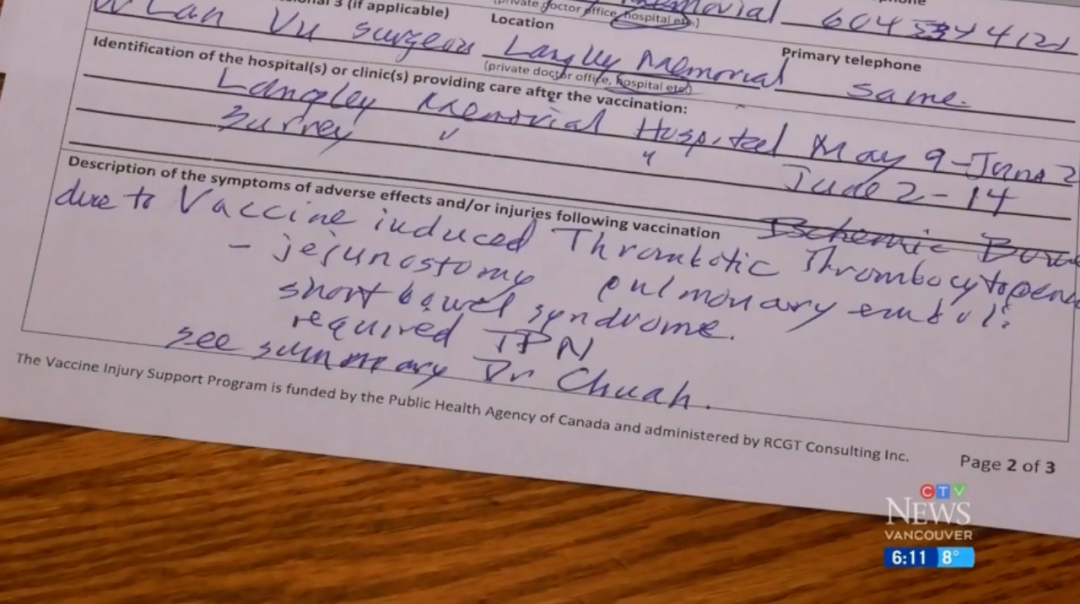 3 (if applicable)
(private doctor office, hospital etc)
morial 604 534 4121
Lan Vu surgeon
Location
Langley Memorial
(private doctor office, hospital etc)
Primary telephone
same.
Identification of the hospital(s) or clinic(s) providing care after the vaccination:
Langley Memorial Hospital May 9-June 2
Surrey " " June 2-14
Description of the symptoms of adverse effects and/or injuries following vaccination Ischemic Bowe
due to Vaccine induced Thrombotic Thrombocytopen
- jejunostomy pulmonary emboli
short bowel syndrome.
required TPN
see summary Dr Chuah.
The Vaccine Injury Support Program is funded by the Public Health Agency of Canada and administered by RCGT Consulting Inc.
Page 2 of 3
CTV
NEWS
VANCOUVER
6:11 8°